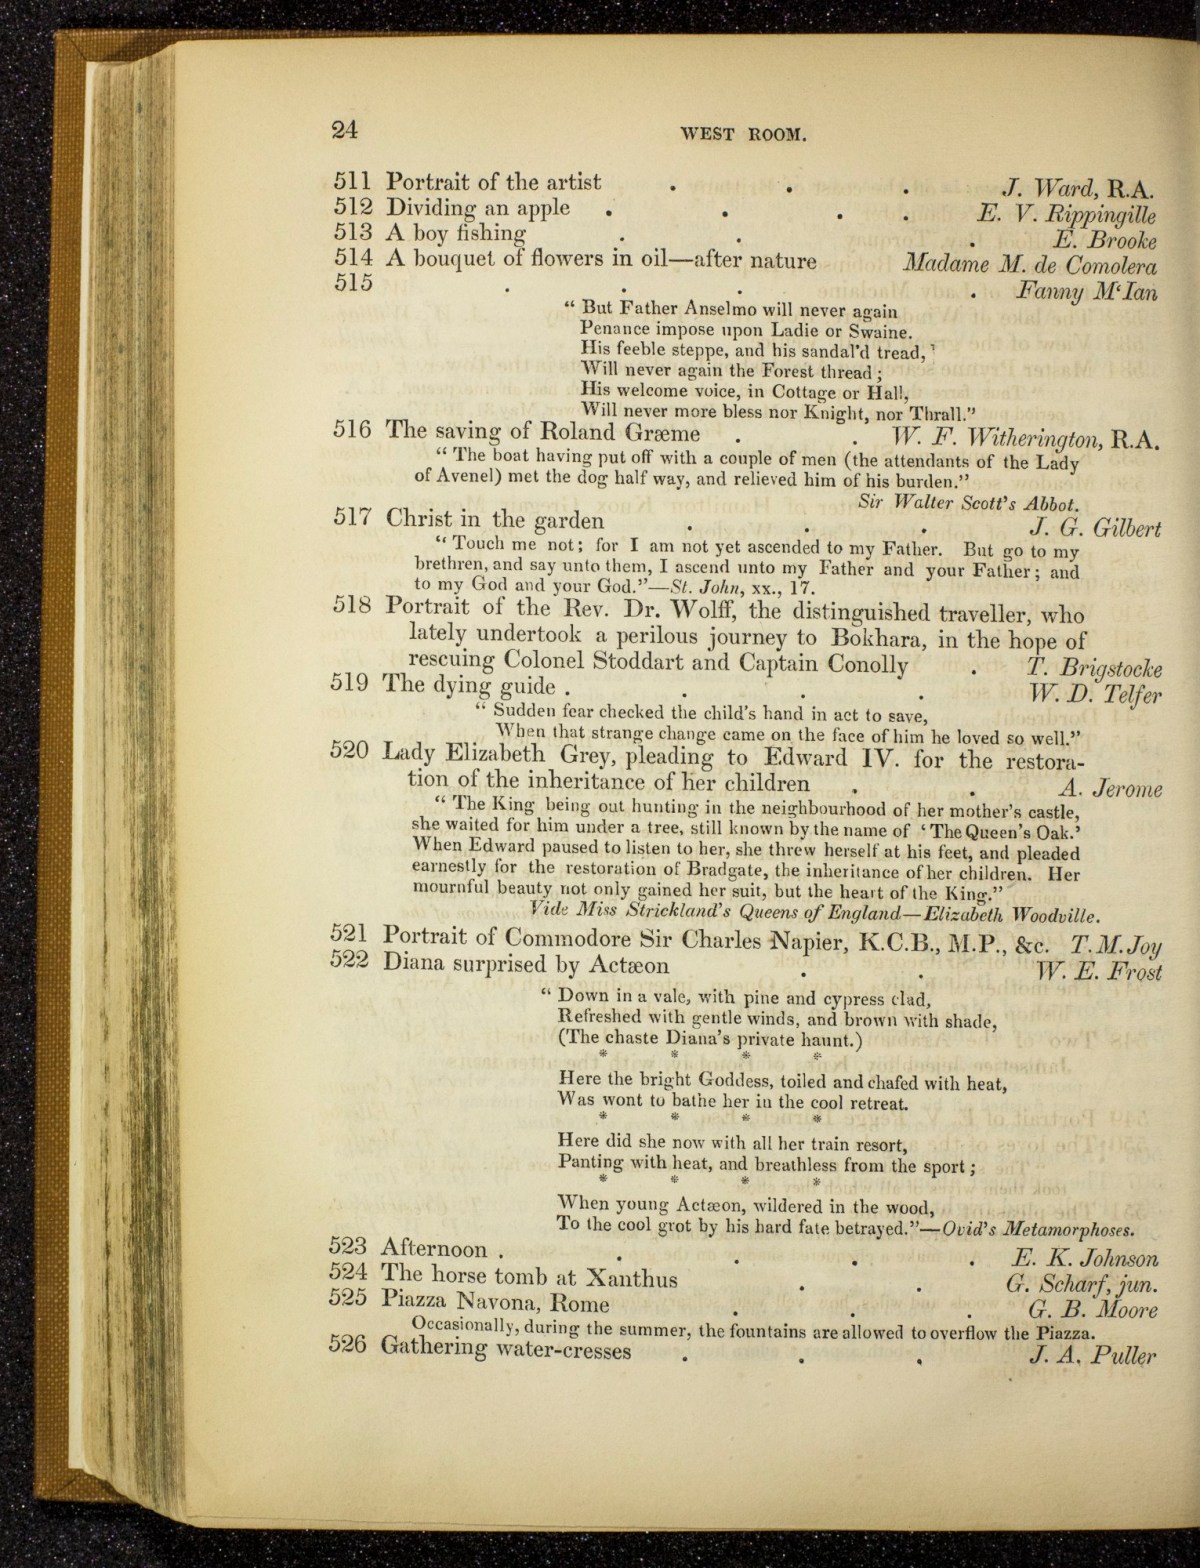 24 WEST ROOM.
511 Portrait of the artist . . . J. Ward, R.A.
512 Dividing an apple . . . . E. V. Rippingille
513 A boy fishing . . . E. Brooke
514 A bouquet of flowers in oil—after nature Madame M. de Comolera
515 . . . . Fanny M‘Ian
“ But Father Anselmo will never again
Penance impose upon Ladie or Swaine.
His feeble steppe, and his sandal’d tread,
Will never again the Forest thread ;
His welcome voice, in Cottage or Hall,
Will never more bless nor Knight, nor Thrall.”
516 The saving of Roland Græme . . W. F. Witherington, R.A.
“ The boat having put off with a couple of men (the attendants of the Lady
of Avenel) met the dog half way, and relieved him of his burden.”
Sir Walter Scott’s Abbot.
517 Christ in the garden . . . J. G. Gilbert
“ Touch me not ; for I am not yet ascended to my Father. But go to my
brethren, and say unto them, I ascend unto my Father and your Father ; and
to my God and your God.”—St. John, xx., 17.
518 Portrait of the Rev. Dr. Wolff, the distinguished traveller, who
lately undertook a perilous journey to Bokhara, in the hope of
rescuing Colonel Stoddart and Captain Conolly . T. Brigstocke
519 The dying guide . . . . W. D. Telfer
“ Sudden fear checked the child’s hand in act to save,
When that strange change came on the face of him he loved so well.”
520 Lady Elizabeth Grey, pleading to Edward IV. for the restora-
tion of the inheritance of her children . . A. Jerome
“ The King being out hunting in the neighbourhood of her mother’s castle,
she waited for him under a tree, still known by the name of ‘ The Queen’s Oak.’
When Edward paused to listen to her, she threw herself at his feet, and pleaded
earnestly for the restoration of Bradgate, the inheritance of her children. Her
mournful beauty not only gained her suit, but the heart of the King.”
Vide Miss Strickland’s Queens of England—Elizabeth Woodville.
521 Portrait of Commodore Sir Charles Napier, K.C.B., M.P., &c. T. M. Joy
522 Diana surprised by Actæon . . W. E. Frost
“ Down in a vale, with pine and cypress clad,
Refreshed with gentle winds, and brown with shade,
(The chaste Diana’s private haunt.)
* * * *
Here the bright Goddess, toiled and chafed with heat,
Was wont to bathe her in the cool retreat.
* * * *
Here did she now with all her train resort,
Panting with heat, and breathless from the sport ;
* * * *
When young Actæon, wildered in the wood,
To the cool grot by his hard fate betrayed.”—Ovid’s Metamorphoses.
523 Afternoon . . . . . E. K. Johnson
524 The horse tomb at Xanthus . . G. Scharf, jun.
525 Piazza Navona, Rome . . . G. B. Moore
Occasionally, during the summer, the fountains are allowed to overflow the Piazza.
526 Gathering water-cresses . . . J. A. Puller